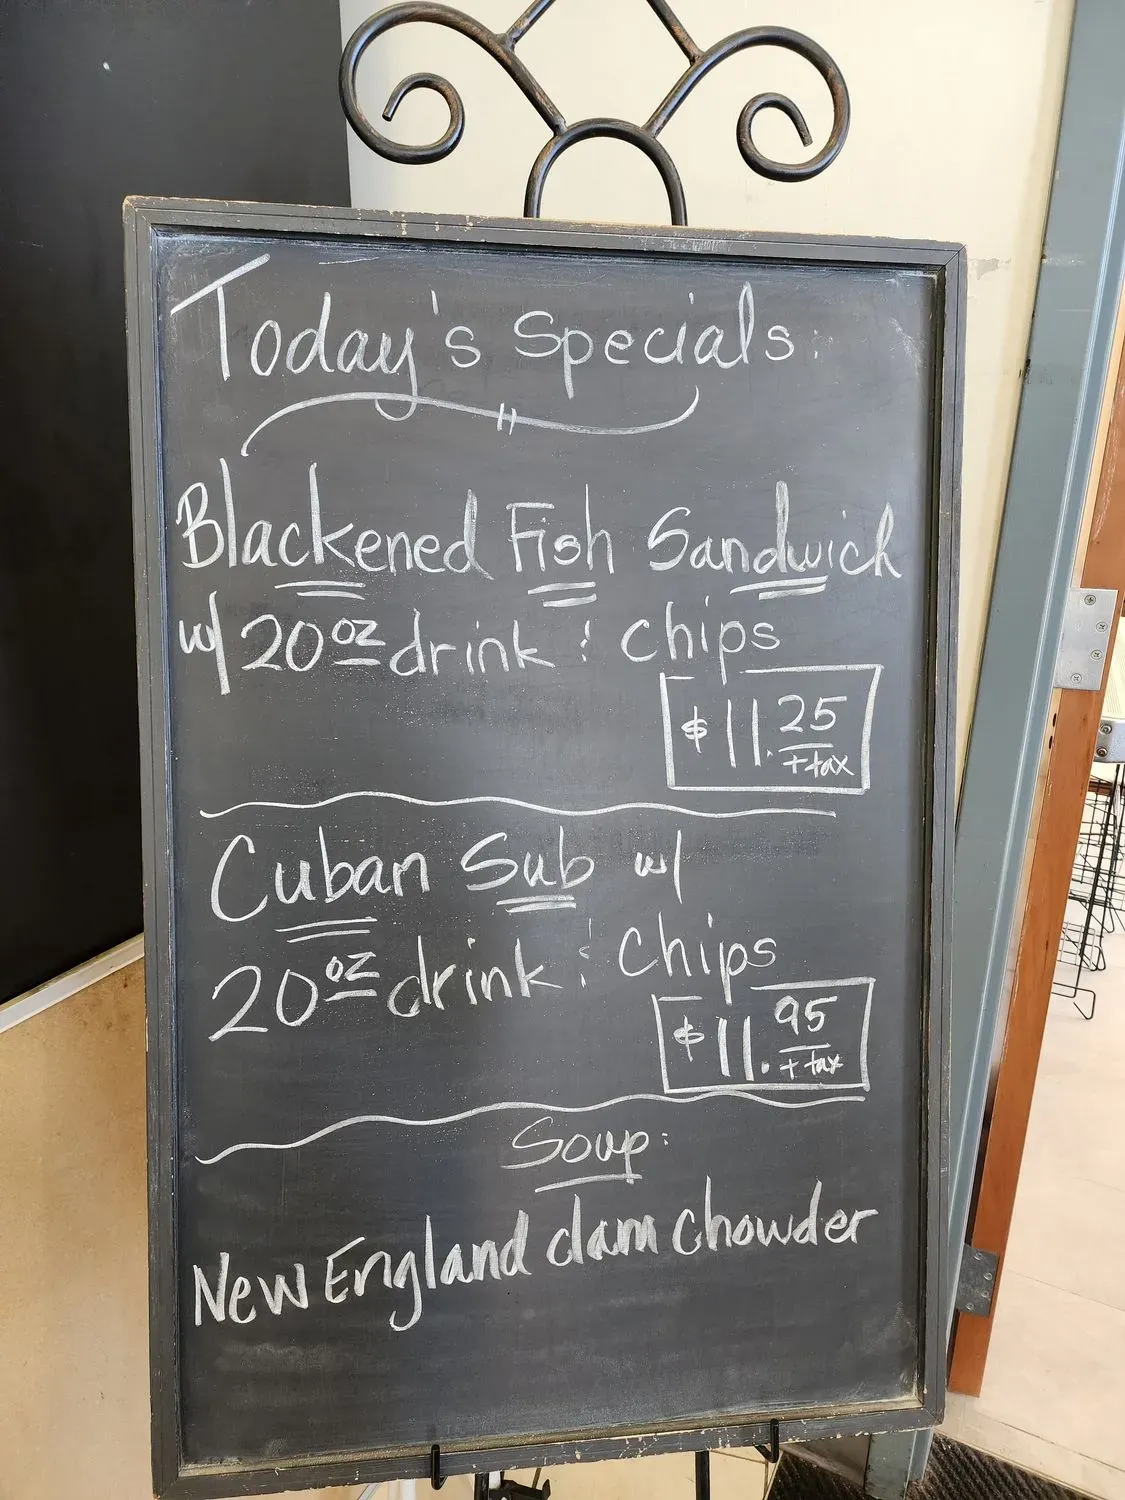 Today's Specials:
Blackened Fish Sandwich
w/ 20 oz drink & Chips
$11.25
+ tax
Cuban Sub w/
20 oz drink & Chips
$11.95
+ tax
Soup:
New England clam chowder